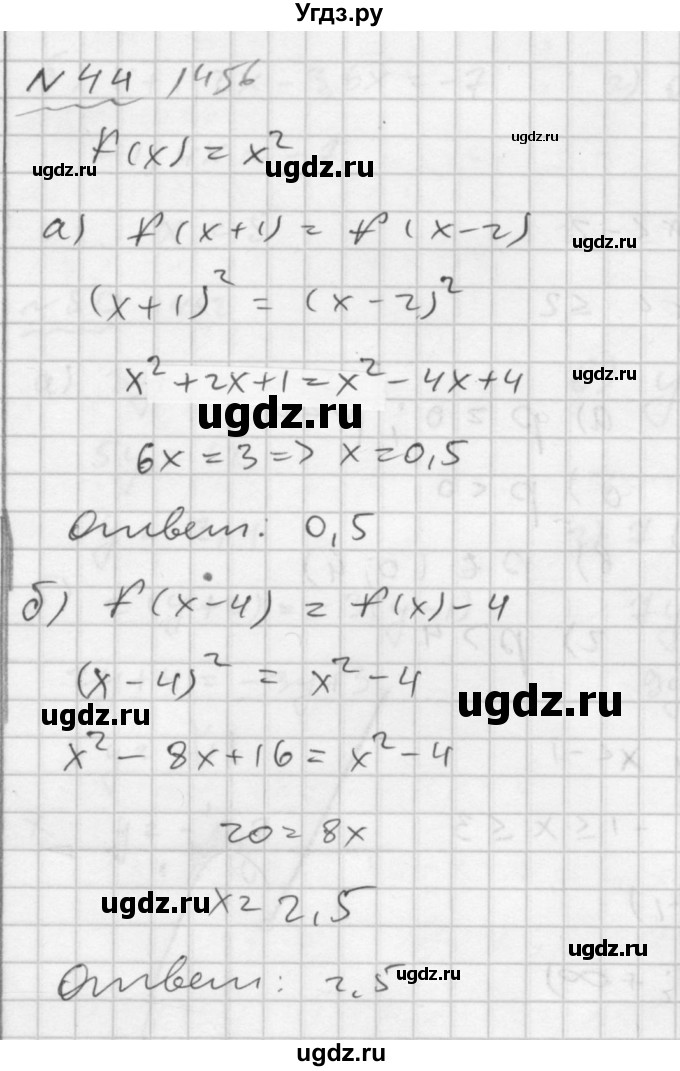 Угдз.ру
N 44 1456
ugdz.ru
f(x) = x²
ugdz.ru ugdz.ru
а) f(x+1) = f(x-2)
ugdz.ru
(x+1)² = (x-2)²
x²+2x+1=x²-4x+4
ugdz.ru
ugdz.ru
6x=3=> x=0,5
Ответ: 0,5
ugdz.ru
б) f(x-4) = f(x)-4
(x-4)² = x²-4
ugdz.ru
ugdz.ru
x²-8x+16=x²-4
20=8x
ugdz.ru x=2,5
ugdz.ru
Ответ: 2,5
ugdz.ru
ugdz.ru